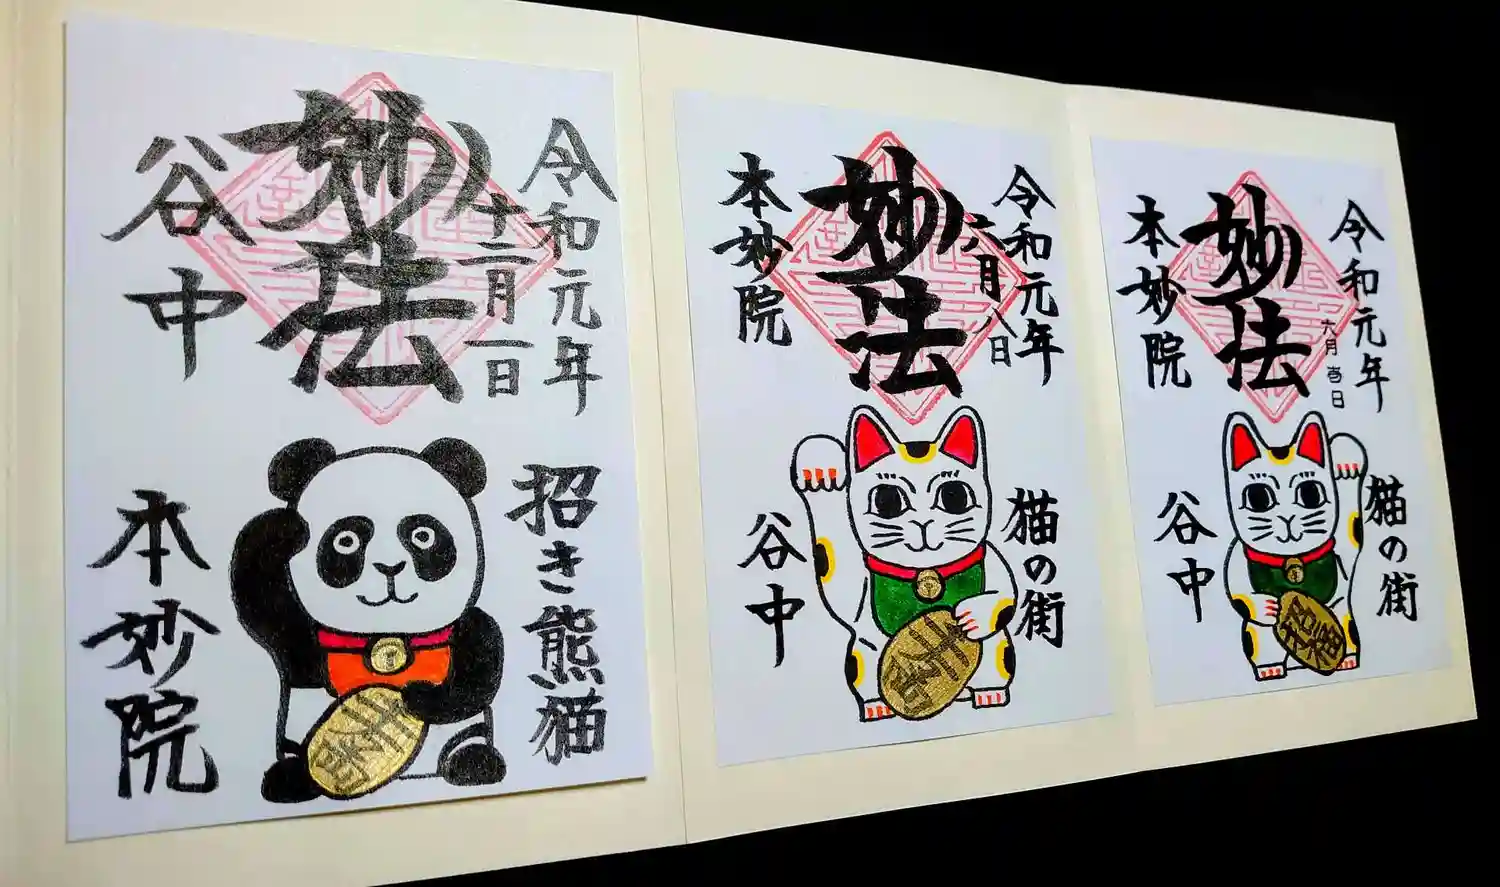 令和元年
十二月一日
妙法
谷中
招き熊猫
本妙院
令和元年
六月八日
妙法
本妙院
猫の街
谷中
令和元年
六月
日
妙法
本妙院
猫の街
谷中
招福